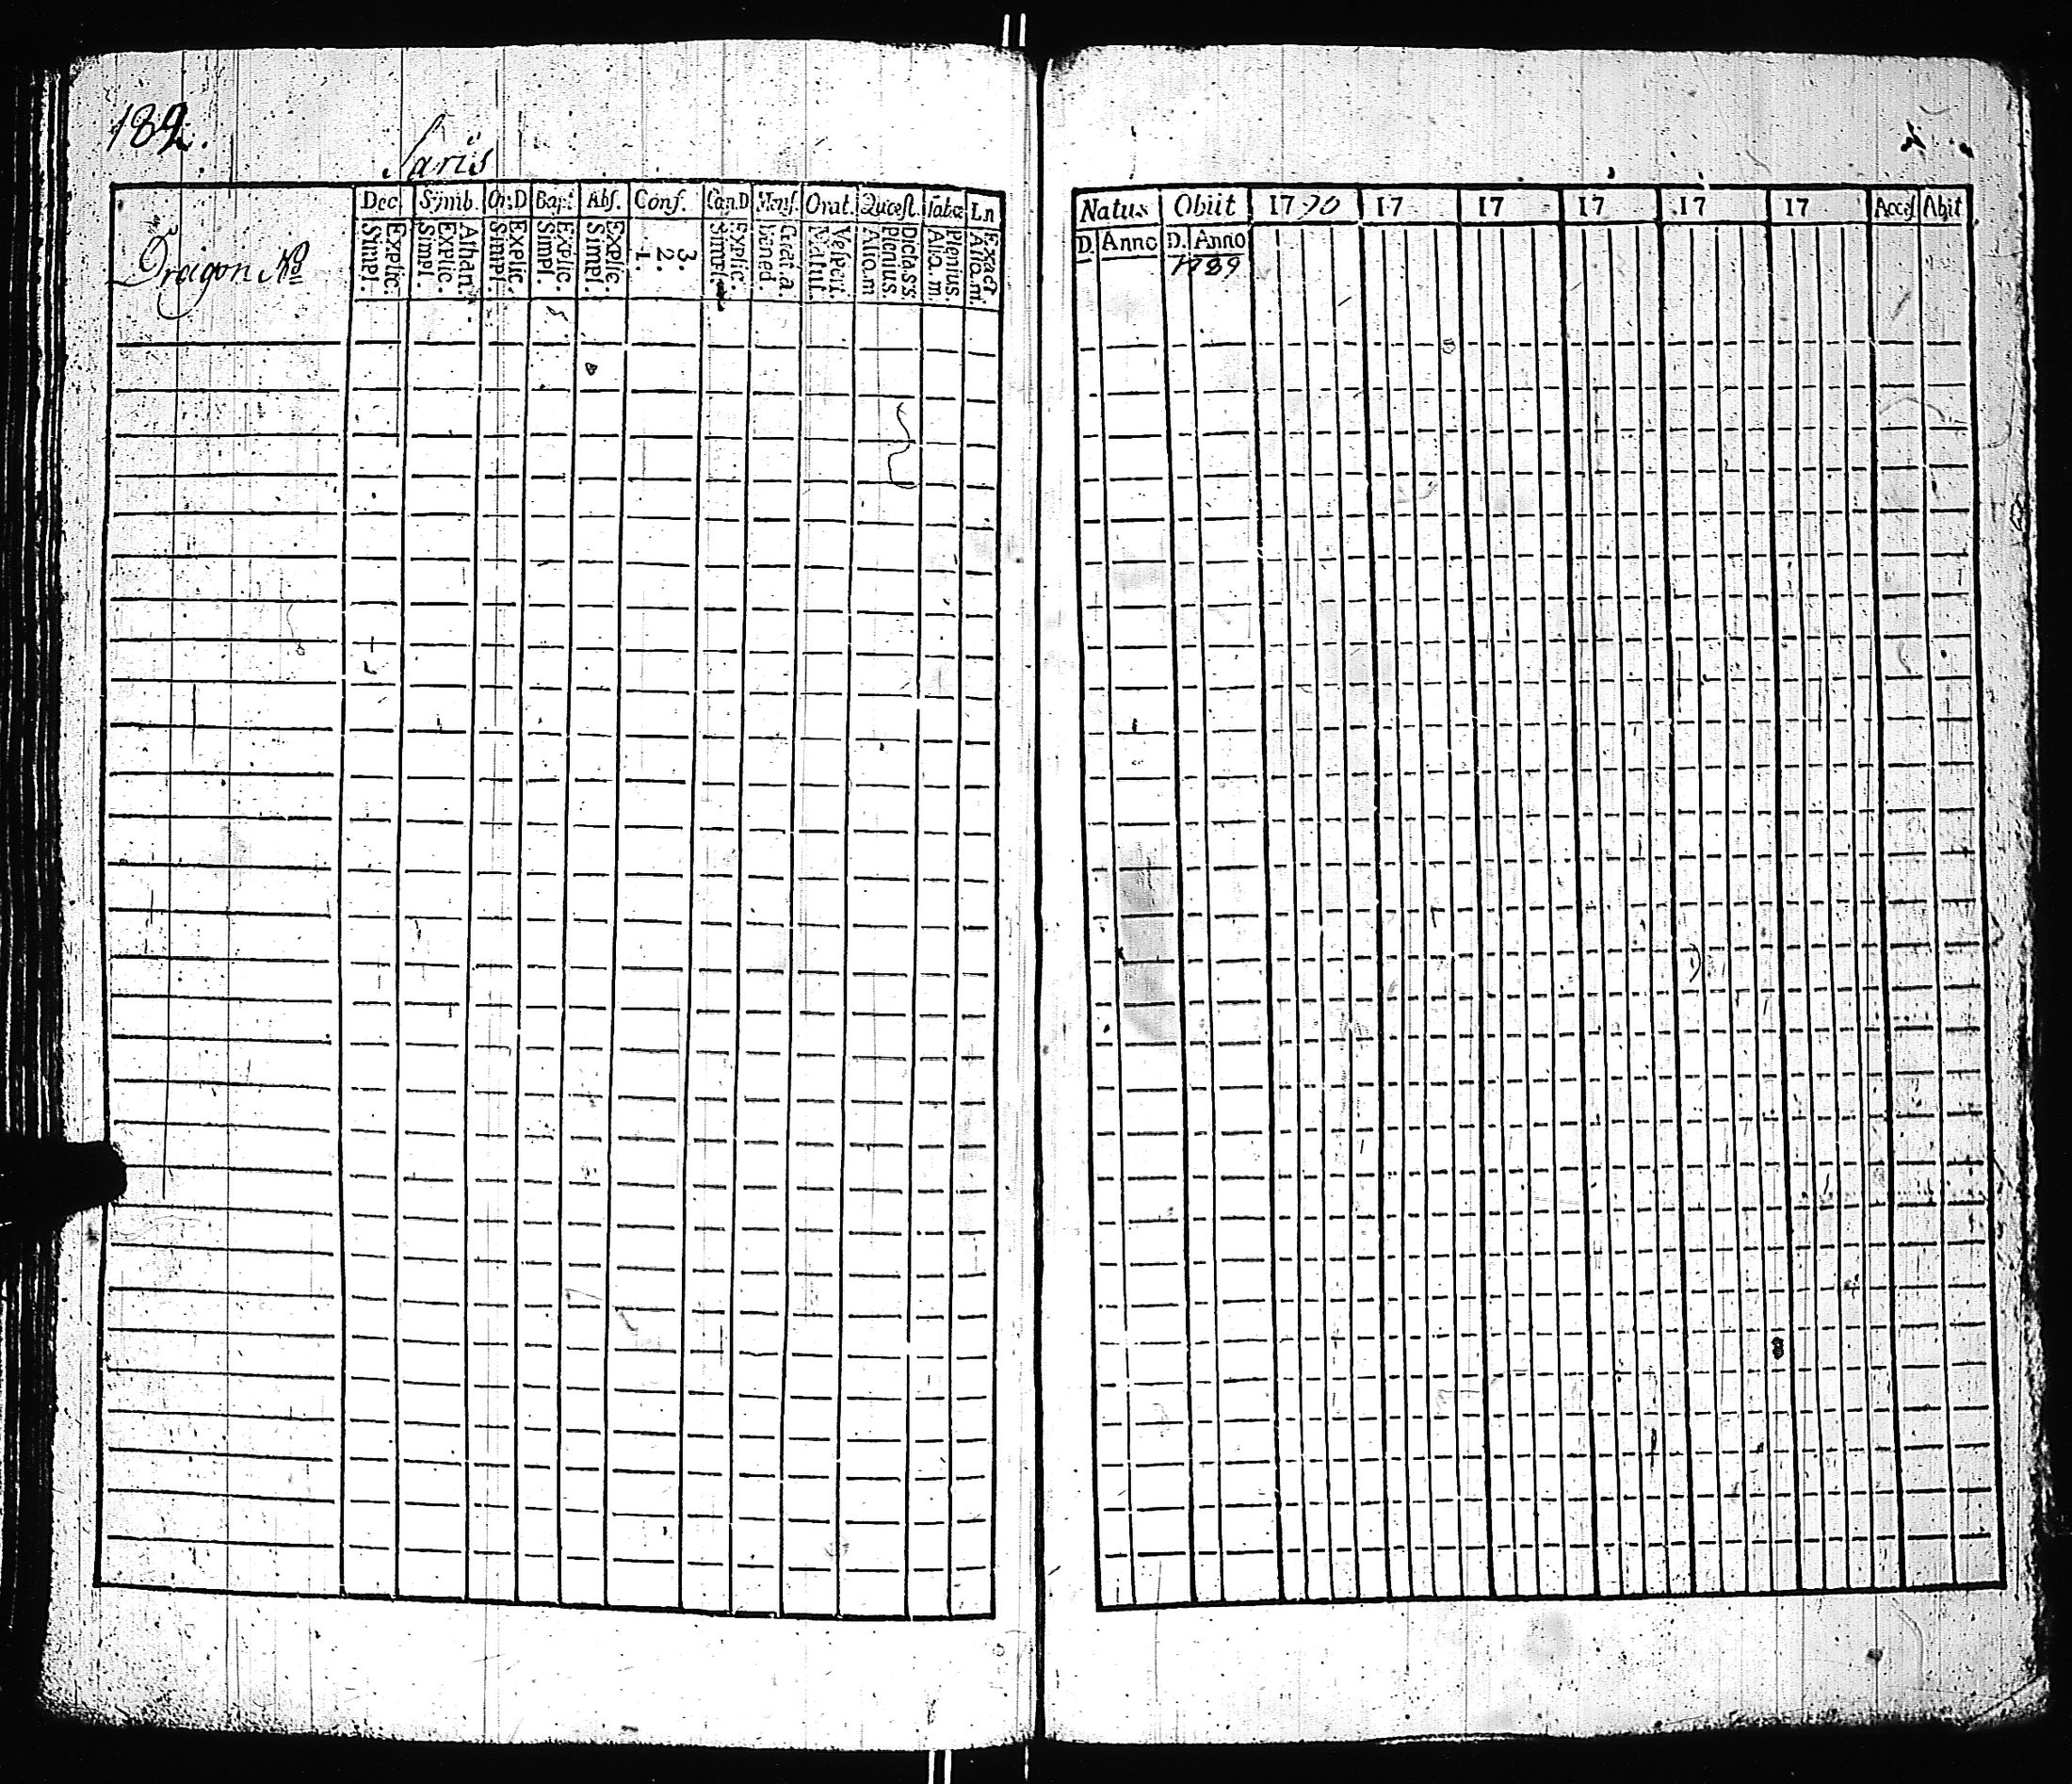 182.
Saris
Dec. Symb. Or.D Bapt. Abs. Conf. Can.D Mens. Orat. Quæst. Tabœ Ln
Explic. Simpl. Athan. Explic. Simpl. Explic. Simpl. Explic. Simpl. Explic. Simpl. 3. 2. 1. Explic. Simpl. Grat. a. Bened. Vespert. Matut. Dicta. S.S. Plenius. Alio. m. Plenius. Alio. m. Exact. Alio. m.
Dragon No
Natus Obiit 1790 17 17 17 17 17 Access Abit
D. Anno D. Anno
1789